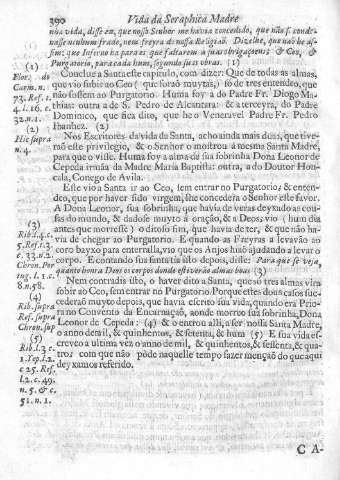 390 Vida da Seraphica Madre
nòa vida, disse en, que nosso Senhor me havia concedido, que não s. conde-
nasse nenhum frade, nem freyra de nossa Religião. Dizelhe, que não he as-
sim: que Inferno ha para es que faltarem a suas obrigaçoens: & Ceo, &
Purgatorio, para cada hum, segundo suas obras. (1)
Conclue a Santa este capitulo, com dizer: Que de todas as almas,
que vio subir ao Ceo (que foraõ muytas) só de tres entendeo, que
naõ fossem ao Purgatorio. Huma foy a do Padre Fr. Diogo Ma-
thias: outra a de S. Pedro de Alcantara: & a terceyra, do Padre
Dominico, que fica dito, que he o Veneravel Padre Fr. Pedro
Ibanhez. (2)
Nos Escritores da vida da Santa, acho ainda mais duas, que tive-
raõ este privilegio, & o Senhor o mostrou á mesma Santa Madre,
para que o visse. Huma foy a alma de sua sobrinha Dona Leonor de
Cepeda irmãa da Madre Maria Bautista: outra, a do Doutor Hon-
cala, Conego de Avila.
Este vio a Santa ir ao Ceo, sem entrar no Purgatorio; & enten-
deo, que por haver sido virgem, lhe concedera o Senhor este favor.
A Dona Leonor, sua sobrinha, que havia de veras deyxado as cou-
sas do mundo, & dadose muyto á oração, & a Deos; vio (hum dia
antes que morresse) o ditoso fim, que havia de ter, & que não ha-
via de chegar ao Purgatorio. E quando as Freyras a levavão ao
coro bayxo para enterralla, vio que os Anjos hiaõ ajudando a levar o
corpo. E contando sua santa tia isto depois, disse: Para que se veja,
quanto honra Deos os corpos donde estiveraõ almas boas (3)
Nem contradis isto, o haver dito a Santa, que só tres almas vira
subir ao Ceo, sem entrar no Purgatorio. Porque estes dous casos suc-
cederaõ muyto depois, que havia escrito sua vida, quando era Prio-
ra no Convento da Encarnaçaõ, aonde morreo sua sobrinha, Dona
Leonor de Cepeda: (4) & o entrou alli, a ser nossa Santa Madre,
o anno de mil, & quinhentos, & setenta, & hum (5) E sua vida es-
creveo a ultima vez o anno de mil, & quinhentos, & sessenta, & qua-
tro; com que não pòde naquelle tempo fazer mençaõ do que aqui
deyxamos referido.
(1)
Flor. do
Carm. n.
73. Ref. t.
4. l. 16. c.
32. n. 1.
(2)
Hic supra
n. 4.
(3)
Rib. l. 4. c.
5. Ref. t. 3.
c. 33. n. 2.
Chron. Por
tug. l. 1. c.
8. n. 58.
(4)
Rib. supra
Ref. supra
Chron. sup
(5)
Rib. l. 3. c.
1. Yep. l. 2.
c 25. Ref.
l. 2. c. 49.
n. 5. & c.
51. n. 1.
C A-